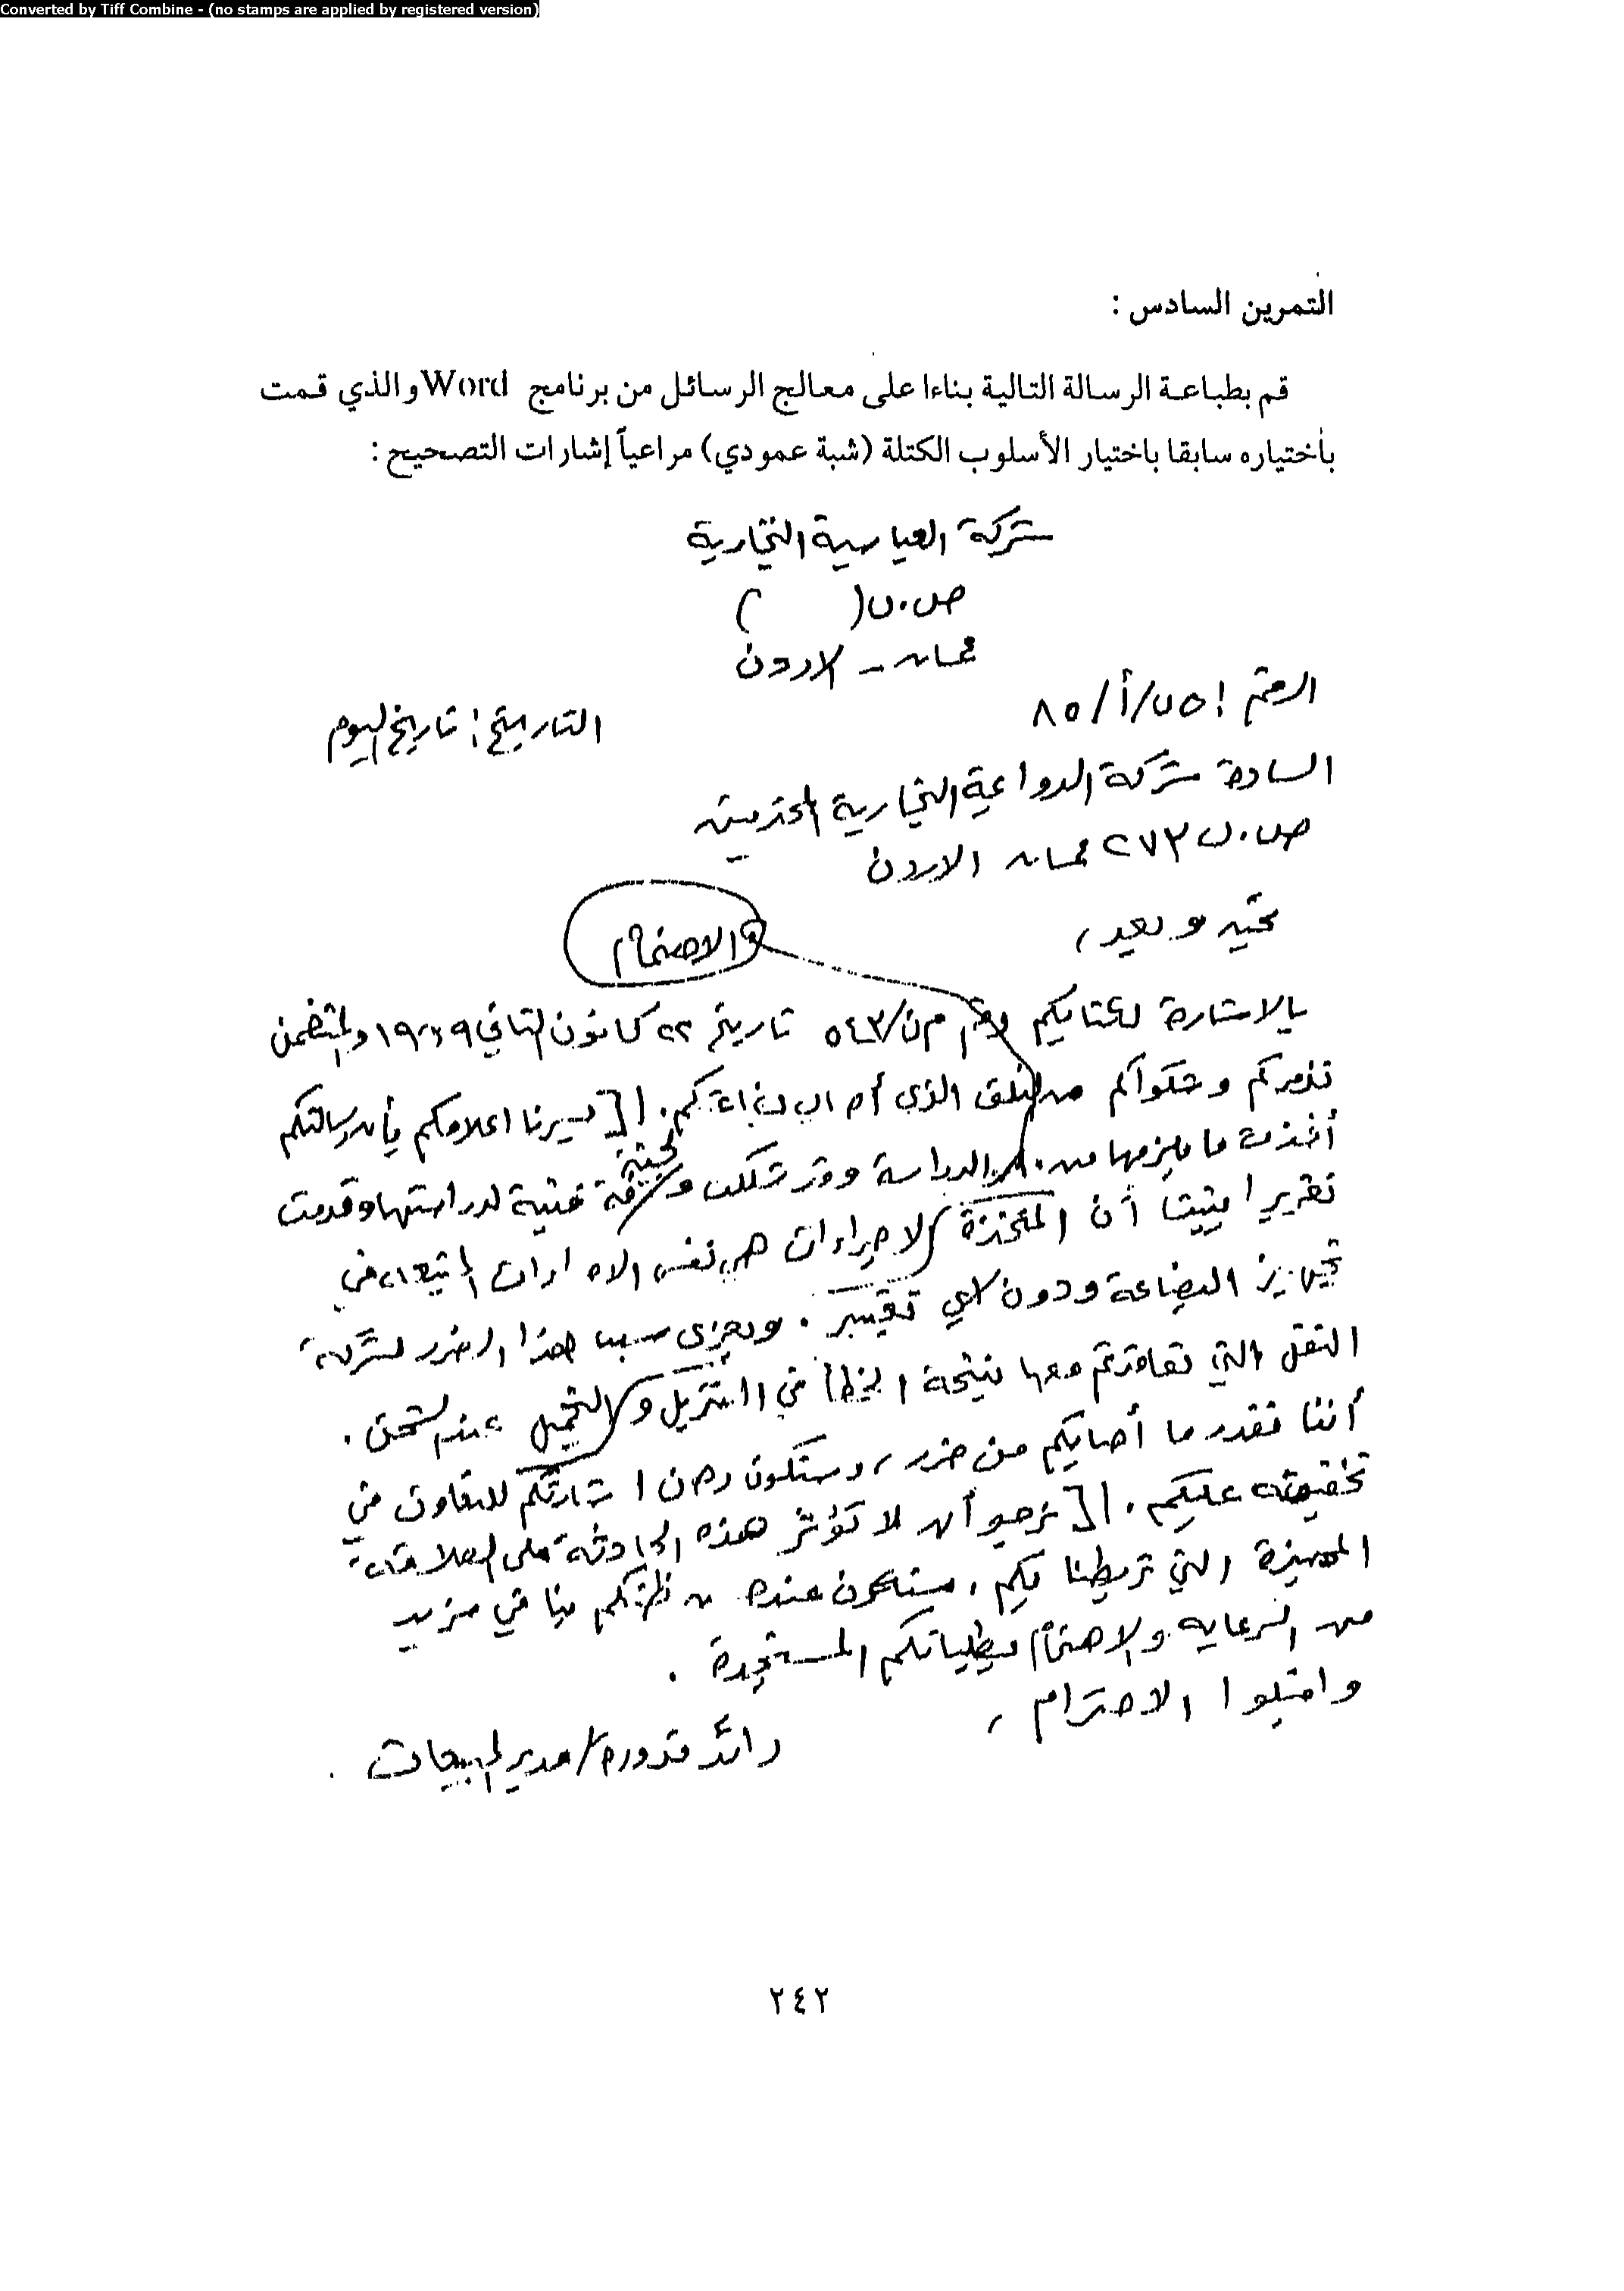 Converted by Tiff Combine - (no stamps are applied by registered version)
التمرين السادس :
قم بطباعة الرسالة التالية بناءا على معالج الرسائل من برنامج Word والذي قمت
بأختياره سابقا باختيار الأسلوب الكتلة (شبة عمودي) مراعياً إشارات التصحيح :
شركة العباسية التجارية
ص.ب ( )
عمان - الاردن
الرقم : ٧٥/أ/٨٥
التاريخ : تاريخ اليوم
السادة شركة الدواعية التجارية المحترمين
ص.ب ٢٧٣ عمان الاردن
تحيه وبعد ،
والاهتمام
بالاشارة لكتابكم رقم م ن/٥٤٣ تاريخ ٢٢ كانون الثاني والمتضمن
تذمركم وشكواكم من التلف الذي بضاعتكم . يسرنا اعلامكم بأن رسالتكم
أخذت ما يلزمها من الدراسة وقد شكلت
لجنة
فنية لدراستها وقدمت
تقريرا يثبت أن المتخذة الاجراءات هي نفس في
تجهيز البضاعة ودون أي تقصير . ويعزى سبب هذا الضرر لشركة
النقل التي تعاقدتم معها نتيجة الخطأ في التنزيل والتحميل عند الشحن .
أننا نقدر ما أصابكم من ضرر ، وسنكون رهن اشارتكم للتعاون في
تخفيفه عليكم . نرجو أن لا تؤثر هذه الحادثة على العلاقة
المميزة التي تربطنا بكم ، عند نظرتكم بنا في مزيد
من الرعايه والاهتمام بطلباتكم المستجدة .
واقبلوا الاحترام ،
رائد قدوره / مدير المبيعات .
٢٤٢